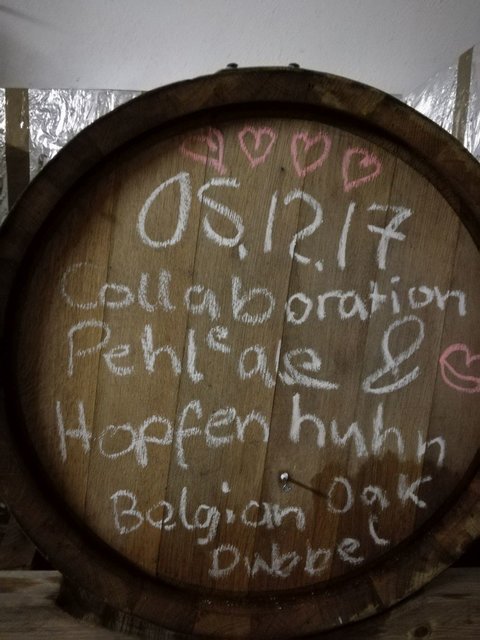 05.12.17
Collaboration
Pehleae &
Hopfenhuhn
Belgian Oak
Dubbel